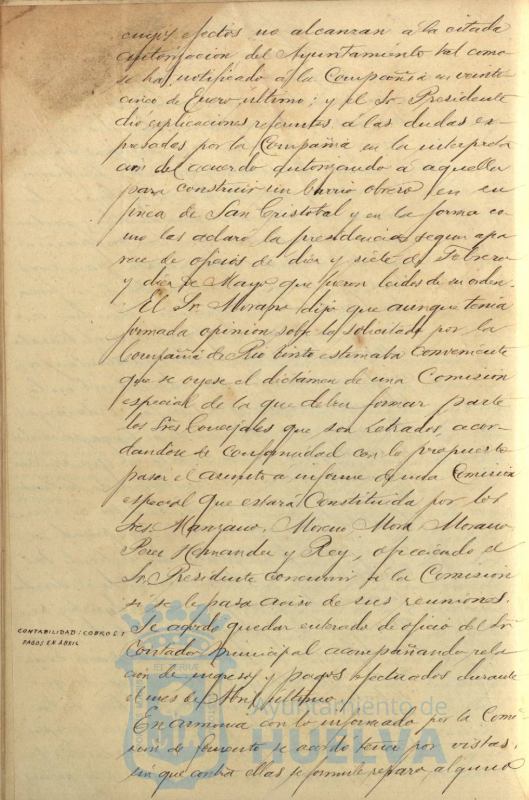 cuyos efectos no alcanzan á la citada
autorizacion del Ayuntamiento tal como
se ha notificado á la Compañia en veinte
cinco de Enero ultimo; y el Sr. Presidente
dio esplicaciones referentes á las dudas ex-
presadas por la Compañia en la interpreta
cion del acuerdo autorizando á aquella
para construir un barrio obrero en su
finca de San Cristobal y en la forma co-
mo las aclaró la presidencia segun apa
rece de oficios de diez y siete de Febrero
y diez de Mayo que fueron leidos de su orden.
El Sr. Morano dijo que aunque tenia
formada opinion sobre lo solicitado por la
Compañia de Rio Tinto estimaba conveniente
que se oyese el dictamen de una Comision
especial de la que deben formar parte
los Sres Concejales que son Letrados, acor-
dandose de conformidad con lo propuesto
pasar el asunto á informe de una Comision
especial que estará Constituida por los
Sres. Manzano, Moreno, Mora, Morano,
Perez Hernandez y Rey, ofreciendo el
Sr. Presidente concurrir á la Comision
si se le pasa aviso de sus reuniones.
CONTABILIDAD: COBROS Y
PAGOS EN ABRIL
Se acordó quedar enterado de oficio del Sr.
Contador municipal acompañando rela
cion de ingresos y pagos efectuados durante
el mes de Abril ultimo.
En armonia con lo informado por la Comi
sion de fomento se acordó tener por vistas,
sin que contra ellas se formule reparo alguno
Ayuntamiento de
HUELVA